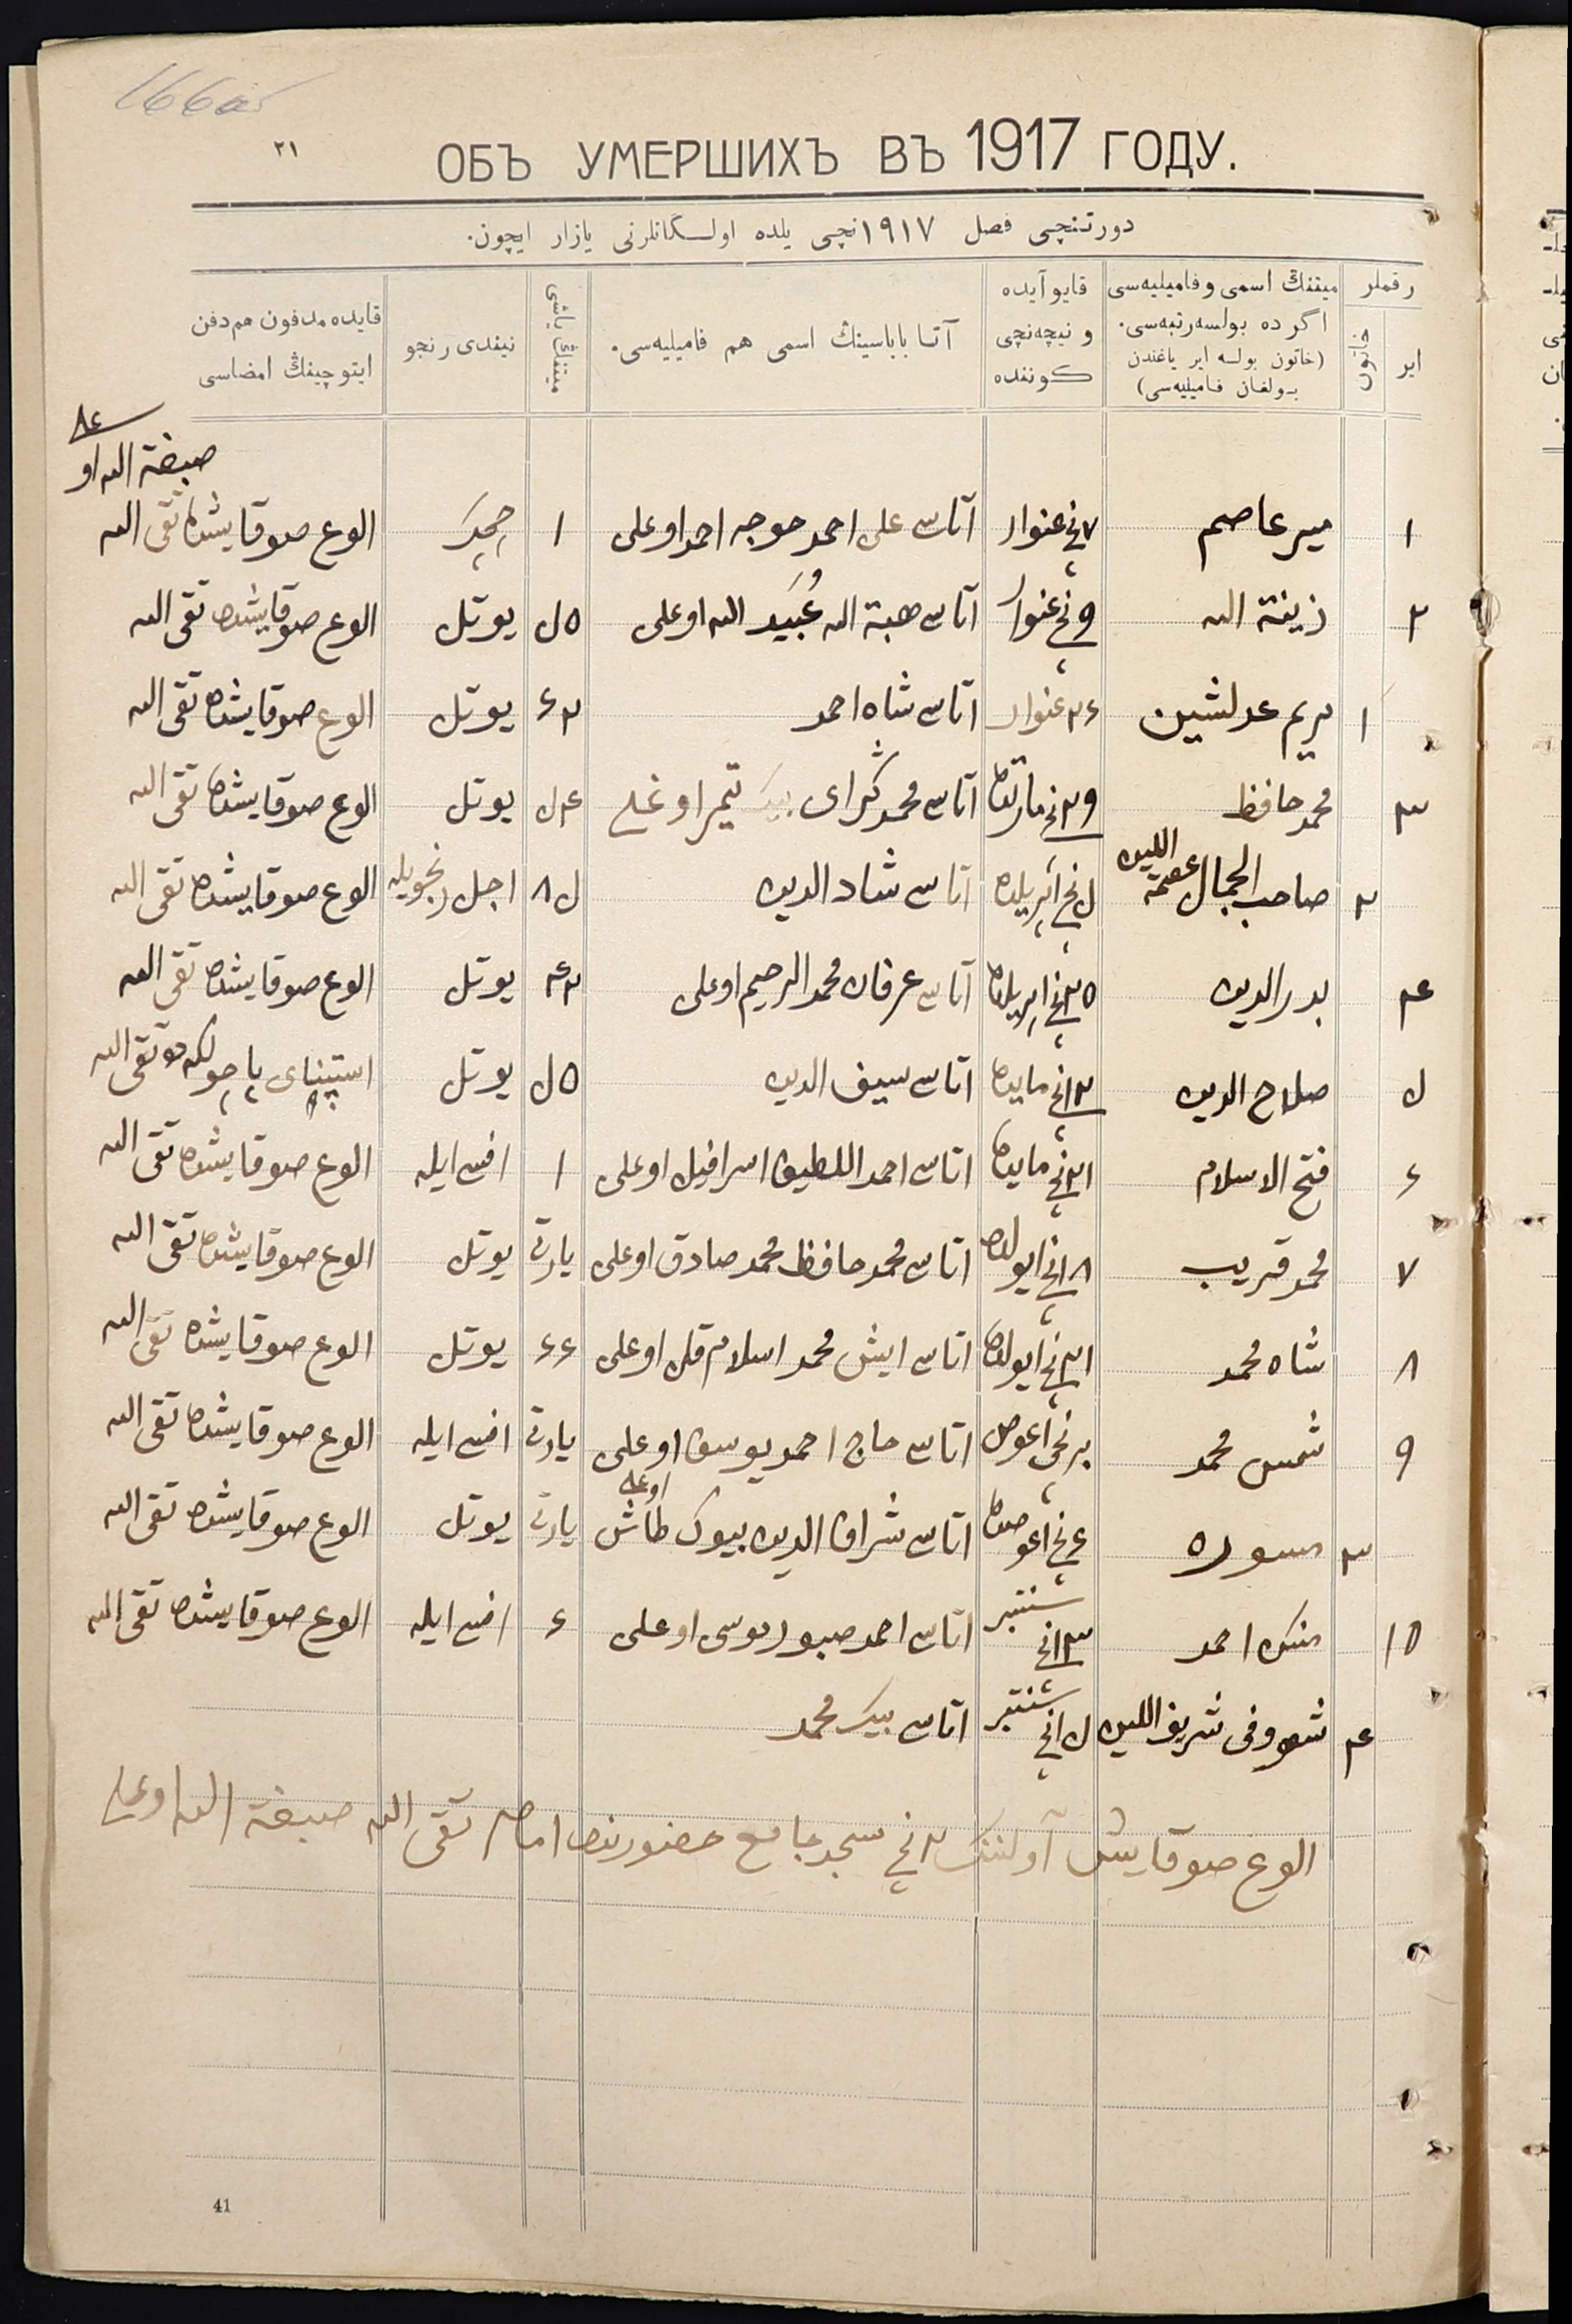 166об
٢١
ОБЪ УМЕРШИХЪ ВЪ 1917 ГОДУ.
دورتنچی فصل ١٩١٧نچی یلده اولـگانلرنی یازار ایچون.
رقملر
ایر
خاتون
میتنڭ اسمی و فامیلیه‌سی
اگرده بولسه‌رتبه‌سی.
(خاتون بولسه ایر یاغندن
بـولغان فـامیلیه‌سی)
قایو آیده
و نیچه‌نچی
کـوننده
آتـا بابـاسینڭ اسمی هم فامیلیه‌سی.
میتنڭ یاشی
نیندی رنجو
قایده مدفون هم دفن
ایتوچینڭ امضاسی
صبغة الله او
غلی
١ میر عاصم ٧نچی غنوار آتاسی علی احمد خوجه احمد اوغلی ١ الوغ صوقایشده تقی الله
٢ زینة الله ٩نچی غنوار آتاسی هبة الله عُبَید الله اوغلی ٥٥ یوتل الوغ صوقایشده تقی الله
١ مریم عدلشین ٢٦ غنوار آتاسی شاه احمد ٢٦ یوتل الوغ صوقایشده تقی الله
٣ محمد حافظ ٢٩نچی مارتده آتاسی محمد گرای بیک تیمر اوغلی یوتل الوغ صوقایشده تقی الله
٢ صاحب الجمال عصمة اللین ٥نچی اپریلده آتاسی شاد الدین ٥٨ اجل رنجویله الوغ صوقایشده تقی الله
٤ بدر الدین ٢٥نچی اپریلده آتاسی عرفان محمد الرحیم اوغلی ٢٤ یوتل الوغ صوقایشده تقی الله
٥ صلاح الدین ١٢نچی مایده اتاسی سیف الدین ٥٥ یوتل تقی الله
٦ فتح الاسلام ٢١نچی مایده اتاسی احمد اللطیف اسرافیل اوغلی ١ ایله الوغ صوقایشده تقی الله
٧ محمد قریب ١٨نچی ایولده اتاسی محمد حافظ محمد صادق اوغلی یارتی یوتل الوغ صوقایشده تقی الله
٨ شاه محمد ٢١نچی ایولده اتاسی ایش محمد اسلام قل اوغلی ٦٦ یوتل الوغ صوقایشده تقی الله
٩ شمس محمد برنچی اغوص اتاسی حاج احمد یوسف اوغلی یارتی ایله الوغ صوقایشده تقی الله
٣ منوره ٤نچی اغوصده اتاسی شراف الدین بیوک طاش اوغلی یارتی یوتل الوغ صوقایشده تقی الله
١٥ منک احمد ١٣نچی سنتبر اتاسی احمد صبور موسی اوغلی ٦ ایله الوغ صوقایشده تقی الله
٤ شریف اللین ١٥نچی سنتبر اتاسی بیک محمد
الوغ صوقایش آولننک ٢نچی مسجد جامع حضورنده امام تقی الله صبغة الله اوغلی
41